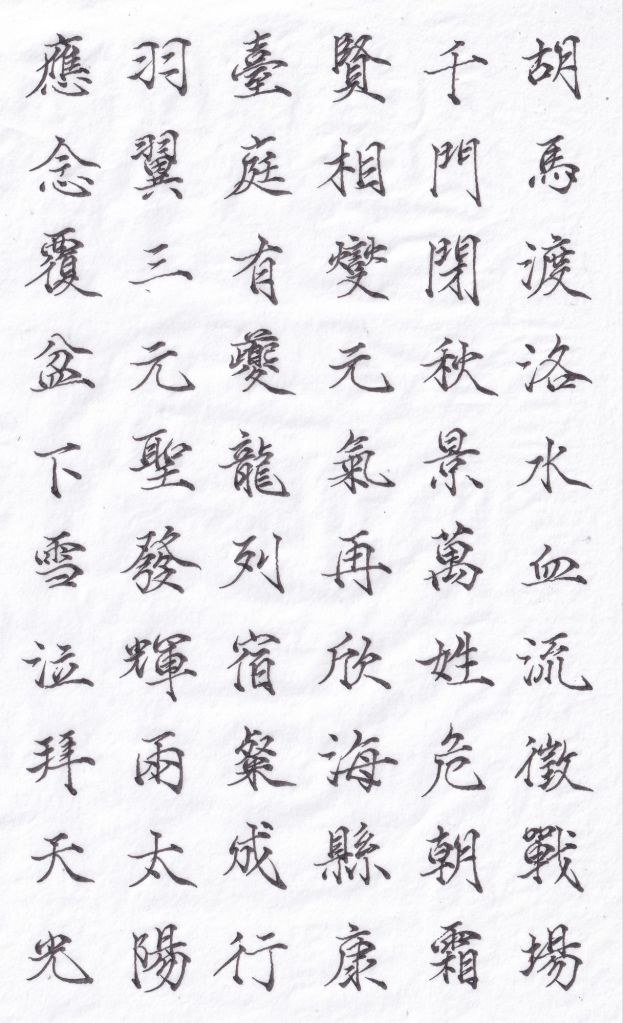 胡馬渡洛水血流徵戰場
千門閉秋景萬姓危朝霜
賢相燮元氣再欣海縣康
臺庭有夔龍列宿粲成行
羽翼三元聖發輝兩太陽
應念覆盆下雪泣拜天光